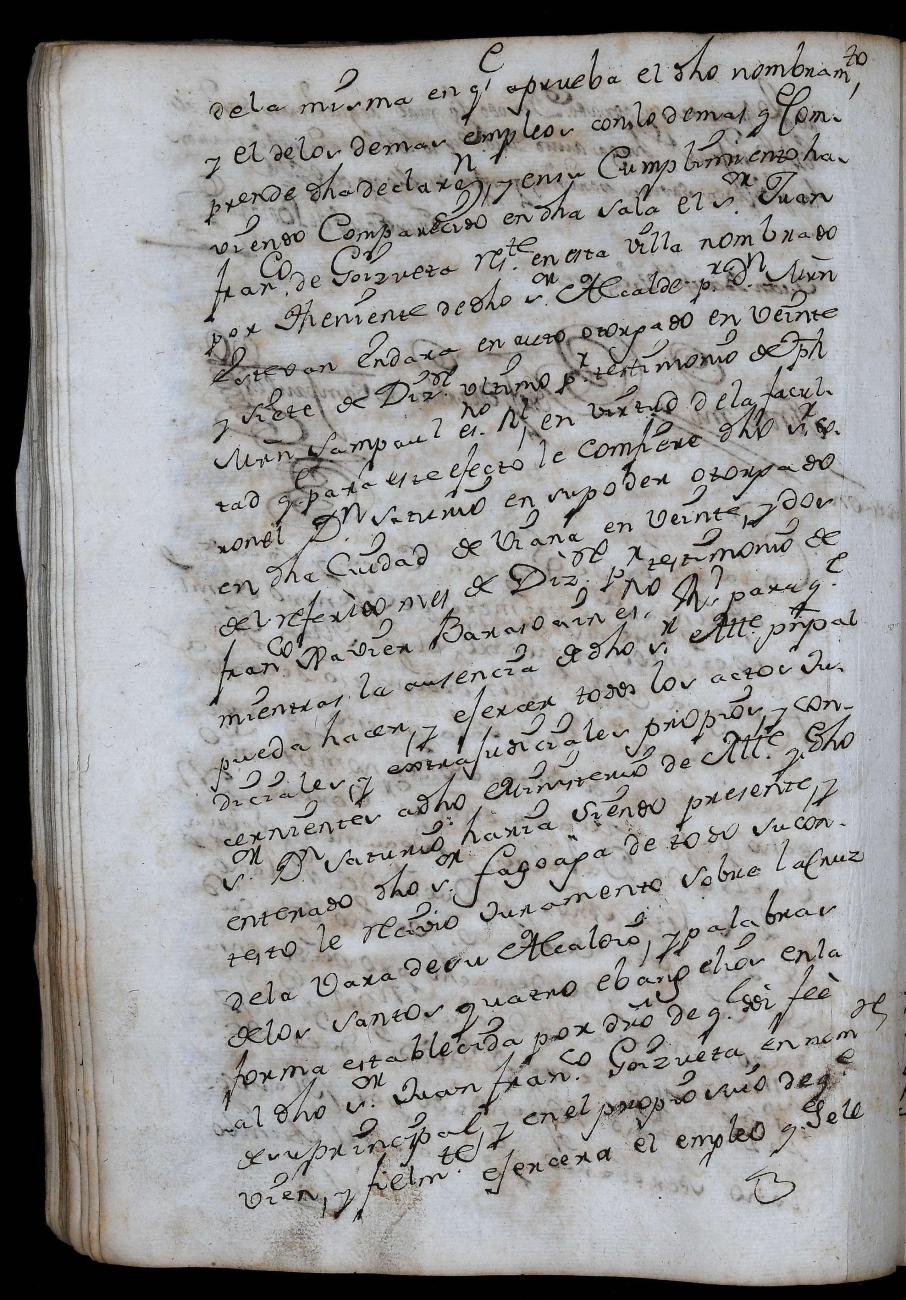 dela misma en q.e aprueba el dho nombram.to
y el delos demas empleos conlo demas q.e Com-
prende dha declara.n, y ensu Cumplimiento ha-
viendo Comparecido en dha sala el s.or Juan
fran.co de Goizueta res.te en esta villa nombrado
por Theniente de dho s.or Alcalde p.r D.n Mrn
Estevan Endara en auto otorgado en veinte
y siete de Diz.re ultimo p.r testimonio de Ph
Mrn Sampaul es.no R.l en virtud de la facul-
tad q.e para este efecto le Confiere dho s.or
ronel D.n Saturnino en su poder otorgado
en dha Ciudad de Viana en veinte, y dos
del referido mes de Diz.re p.r testimonio de
fran.co Xavier Barasoain es.no R.l para q.e
mientras la ausencia de dho s.r Alc.e prinpal
pueda hacer, y ejercer todos los actos Ju-
diciales, y extrajudiciales propios, y con-
cernientes a dho Ministerio de Alc.e q.e dho
s.or D.n Saturnino haria siendo presente, y
enterado dho s.or Fagoaga de todo su con-
testo le recivio Juramento sobre la Cruz
dela Vara de su Alcaldio, y palabras
delos santos quatro ebangelios en la
forma establecida por dro de q.e doi feè
al dho s.or Juan fran.co Goizueta, en nom.re
de su principal, y en el propio suio de q.e
vien, y fielm.te ejercera el empleo q.e se le